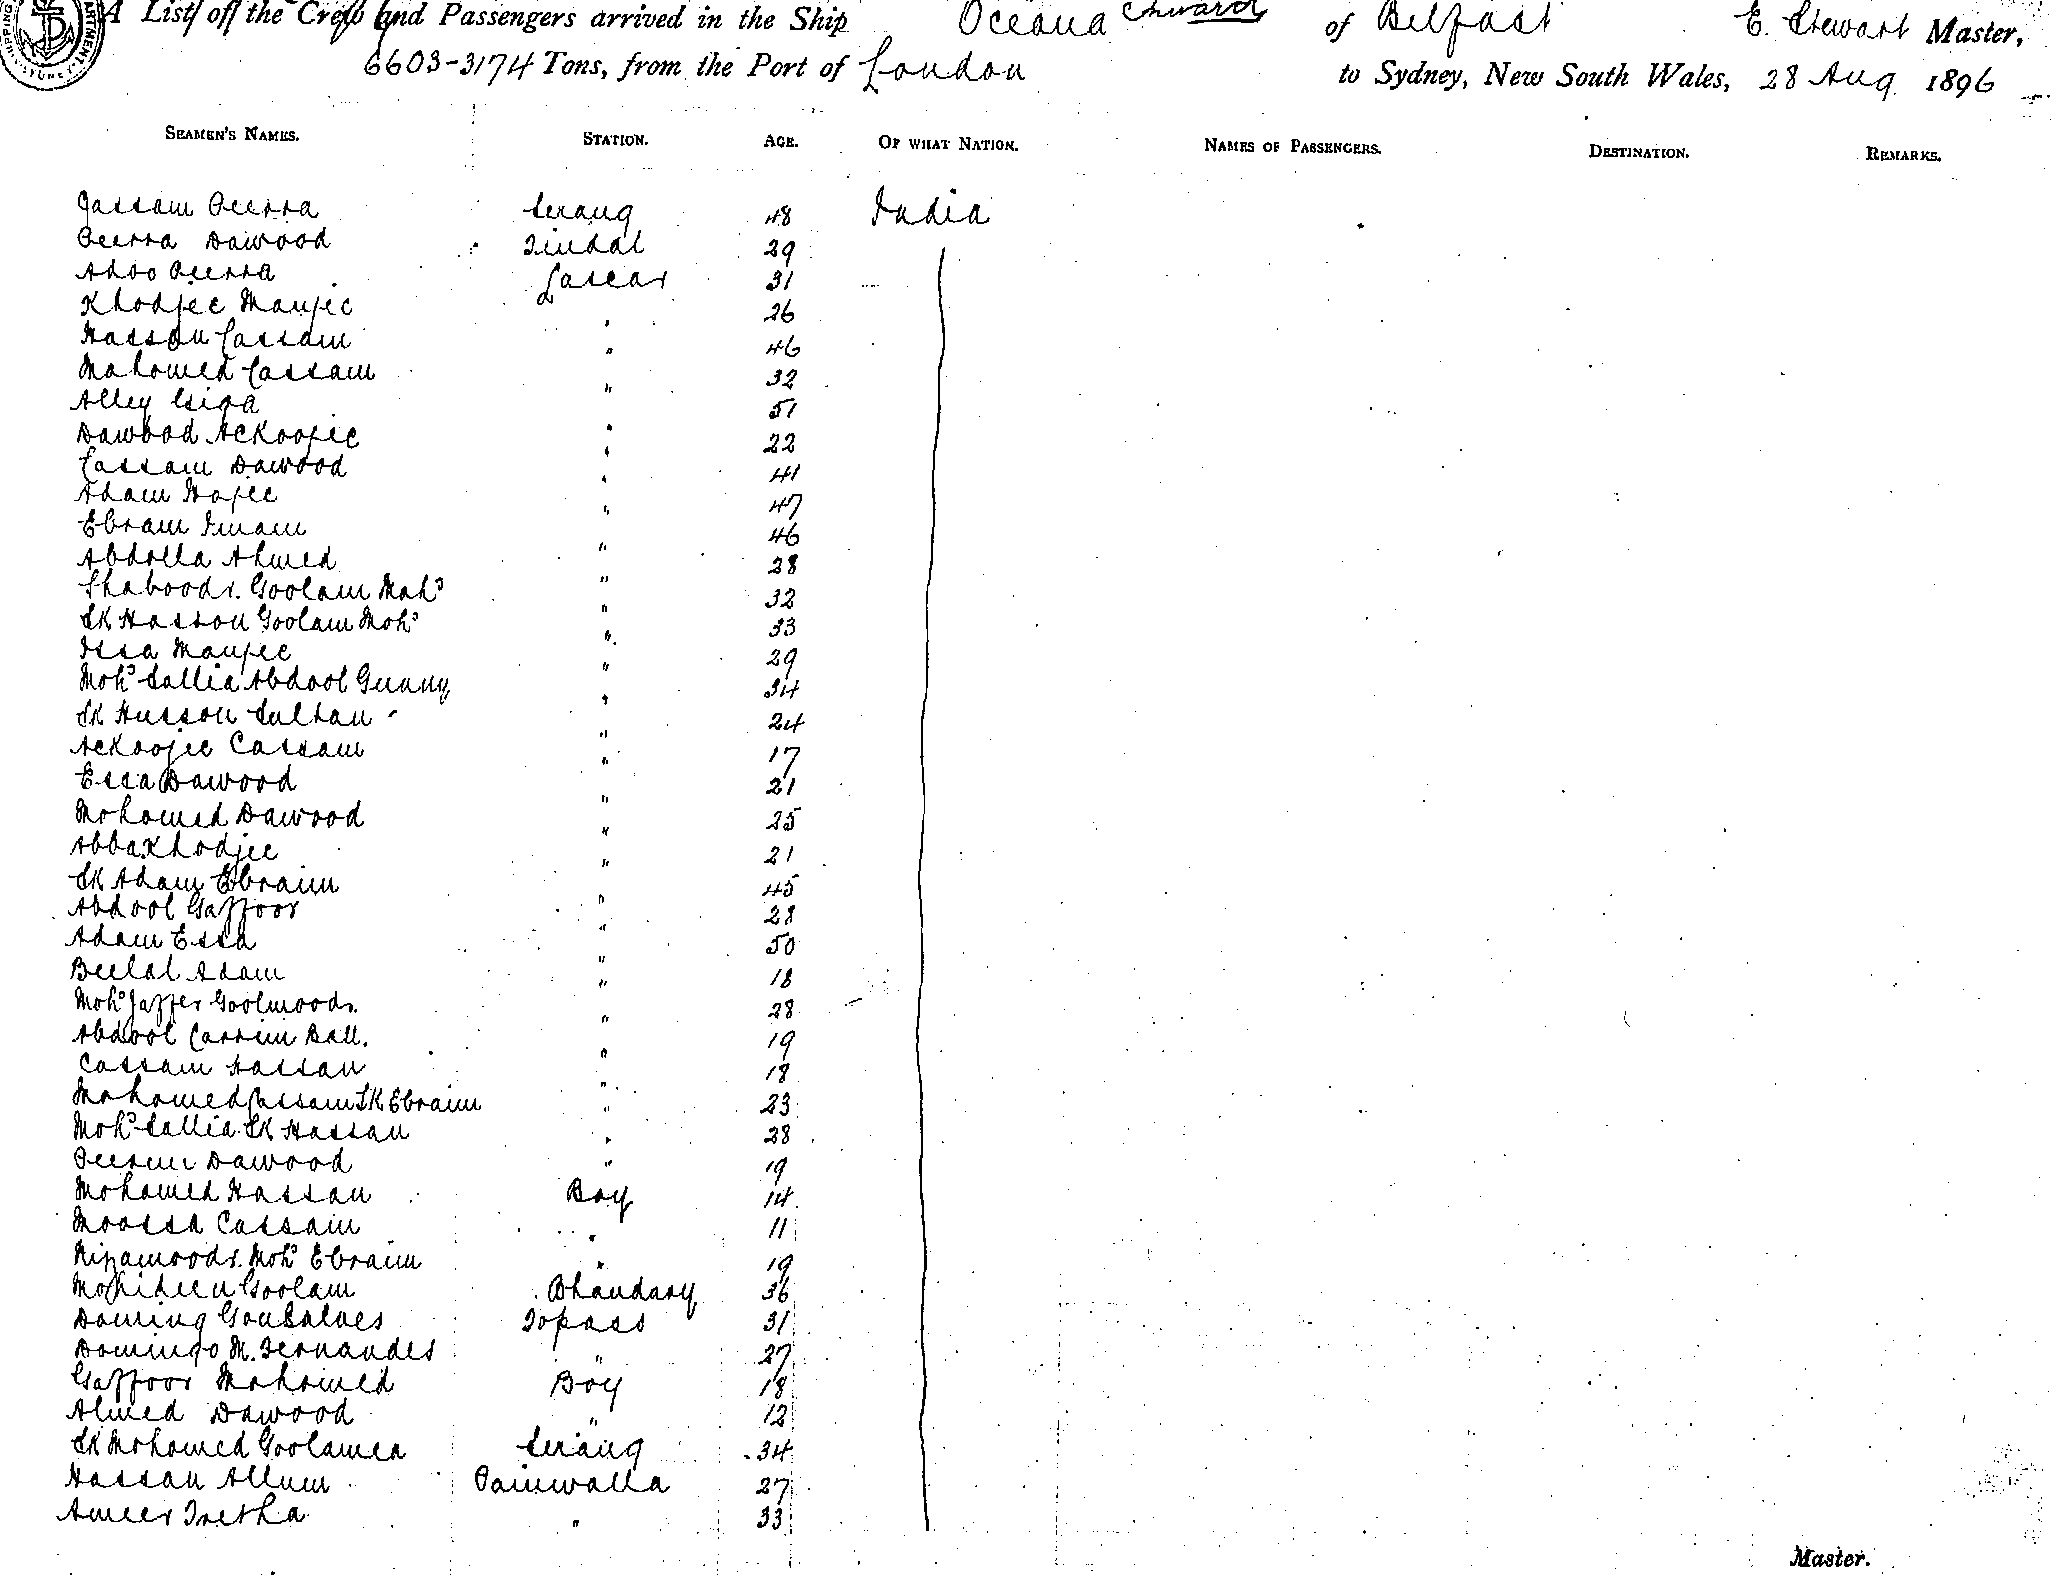 A List of the Crew and Passengers arrived in the Ship Oceana of Belfast E. Stewart Master,
6603-3174 Tons, from the Port of London to Sydney, New South Wales, 28 Aug 1896
SEAMEN'S NAMES. STATION. AGE. OF WHAT NATION. NAMES OF PASSENGERS. DESTINATION. REMARKS.
Jassam Peerra Serang 48 India
Peerra Dawood Tindal 29
Adoo Peerra Lascar 31
Khodjee Manjee " 26
Hassan Cassam " 46
Mahomed Cassam " 32
Alley 51
Dawood Ackoojee " 22
Cassam Dawood " 41
Adam Hajee " 47
Ebram Imam " 46
Abdolla Ahmed " 28
Shaboodn. Goolam Moh'd " 32
SK Hassan Goolam Moh'd " 33
Issa Manjee " 29
Moh'd Sallia Abdool Gunny " 34
SK Husson Sultan " 24
Ackoojee Cassam " 17
Essa Dawood " 21
Mohomed Dawood " 25
Abba Khodjee " 21
SK Adam Ebraim " 45
Abdool Gaffoor " 28
Adam Essa " 50
Beelal Adam " 18
Moh'd Jaffer Goolmoodn. " 28
Abdool Carrim Ball. " 19
Cassam Hassan " 18
Mohomed Cassam SK Ebraim " 23
Moh'd Sallia SK Hassan " 28
Peerun Dawood " 19
Mohomed Hassan Boy 14
Moossa Cassam " 11
Nizamoodn. Moh'd Ebraim " 19
Mohideen Goolam Bhandary 36
Doming Gonsalves Topass 31
Domingo M. Fernandes " 27
Gaffoor Mohomed Boy 18
Ahmed Dawood " 12
SK Mohomed Goolamea Serang 34
Hassan Allum Paniwalla 27
Ameer " 33
Master.